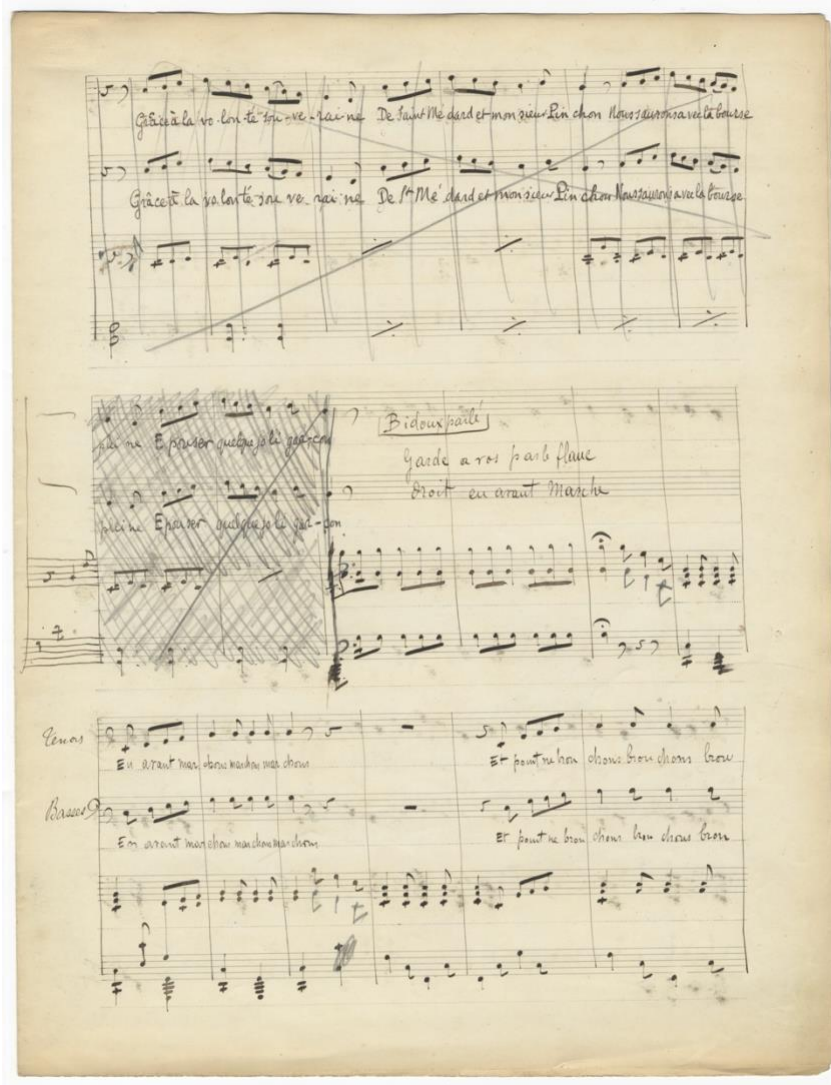 Grâce à la vo-lon-té sou-ve-rai-ne De Saint Mé dard et mon sieur Pin chon Nous saurons avec la bourse
Grâce à la vo lon té sou ve-rai-ne De St Mé dard et mon sieur Pin chon Nous saurons avec la bourse
plei ne E pouser quelque jo li gar-çon
Bidoux parlé
Garde a vos
droit en avant Marche
plei ne E pouser quelque jo li gar-çon
Tenors
En avant mar chons marchons mar chons Et point ne bron chons bron chons bron
Basses
En avant mar chons marchons marchons Et point ne bron chons bron chons bron